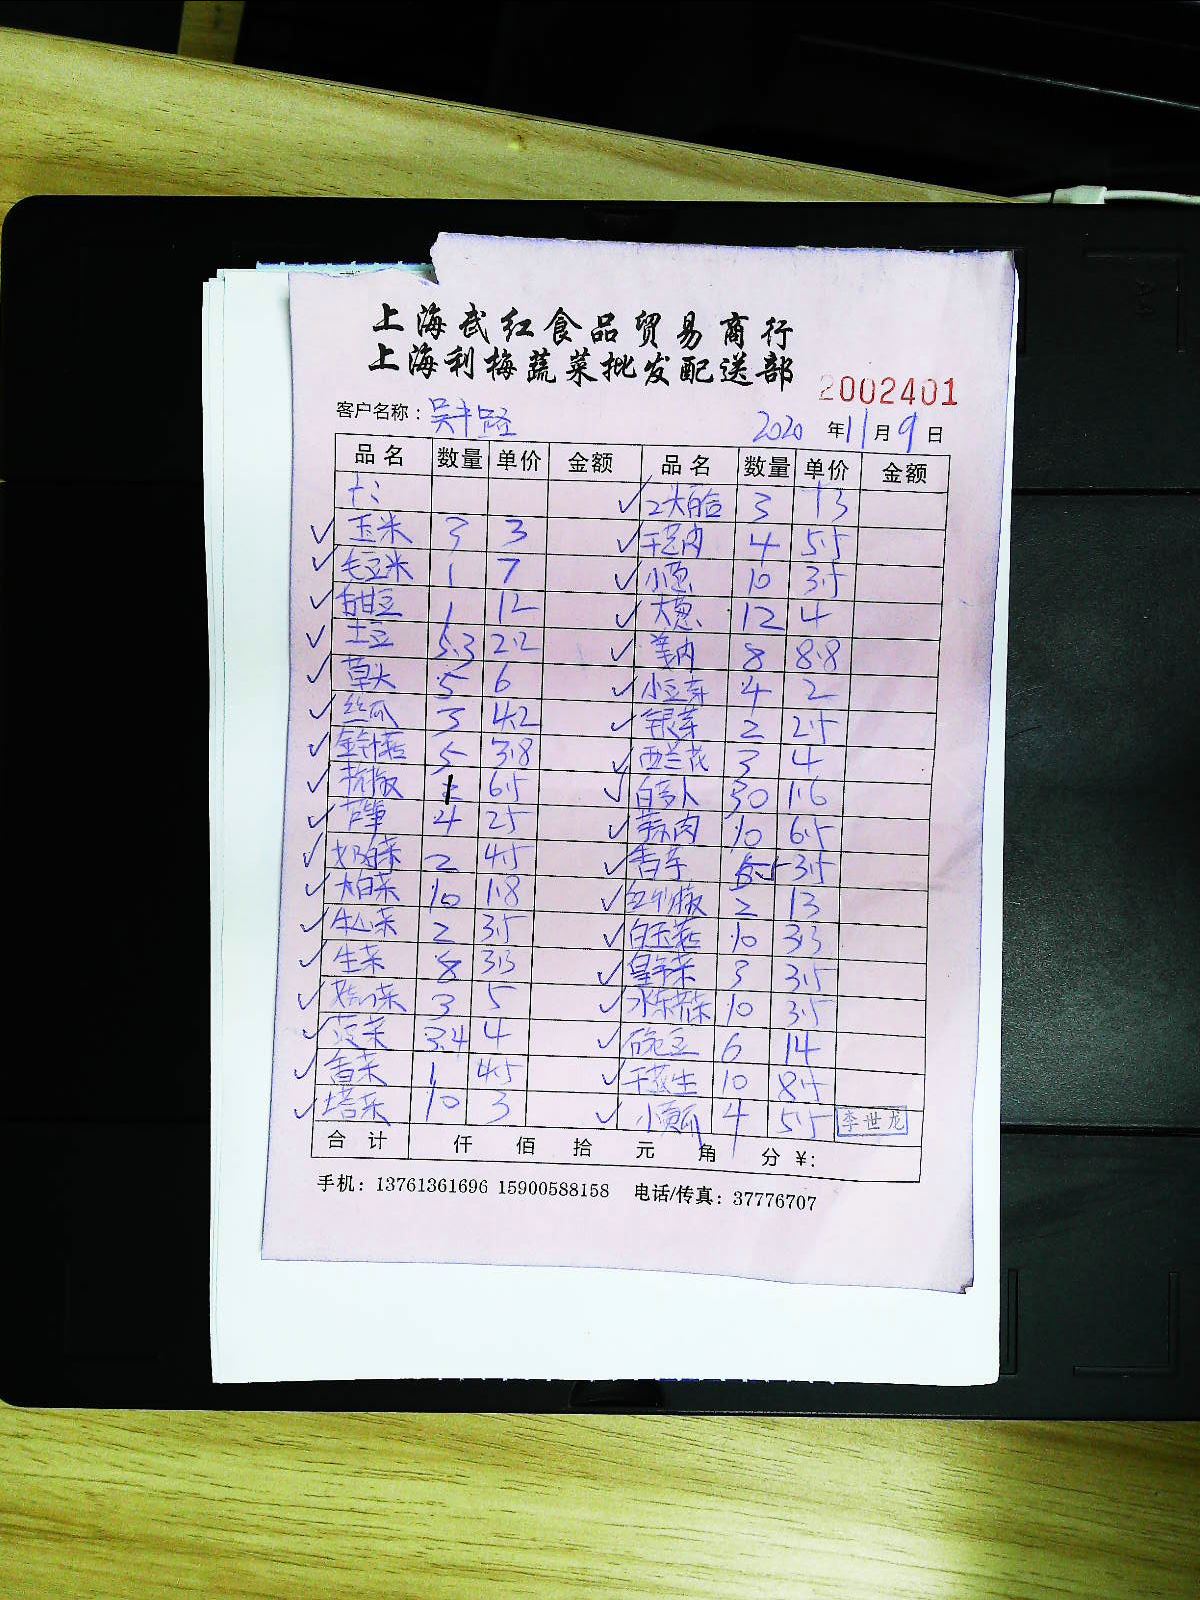 上海武红食品贸易商行
上海利梅蔬菜批发配送部
2002401
客户名称：吴中路 2020 年 11 月 9 日
品名 数量 单价 金额 品名 数量 单价 金额
3 13
玉米 3 3 4 5.5
毛豆米 1 7 小葱 10 3.5
甜豆 1 12 大葱 12 4
土豆 5.3 2.2 姜肉 8 8.8
草头 5 6 小豆芽 4 2
丝瓜 3 4.2 银芽 2 2.5
金针菇 5 3.8 西兰花 3 4
杭椒 1 6.5 白萝卜 30 1.6
芦笋 4 25 10 6.5
奶白菜 2 4.5 香芋 5.5 3.5
大白菜 10 1.8 红小椒 2 13
牛心菜 2 3.5 白玉菇 10 3.3
生菜 8 3.3 3 3.5
3 5 10 3.5
菠菜 3.4 4 豌豆 6 14
香菜 1 4.5 干花生 10 8.5
塔菜 10 3 小黄瓜 4 5.5 李世龙
合计 仟 佰 拾 元 角 分 ¥:
手机：13761361696 15900588158 电话/传真：37776707